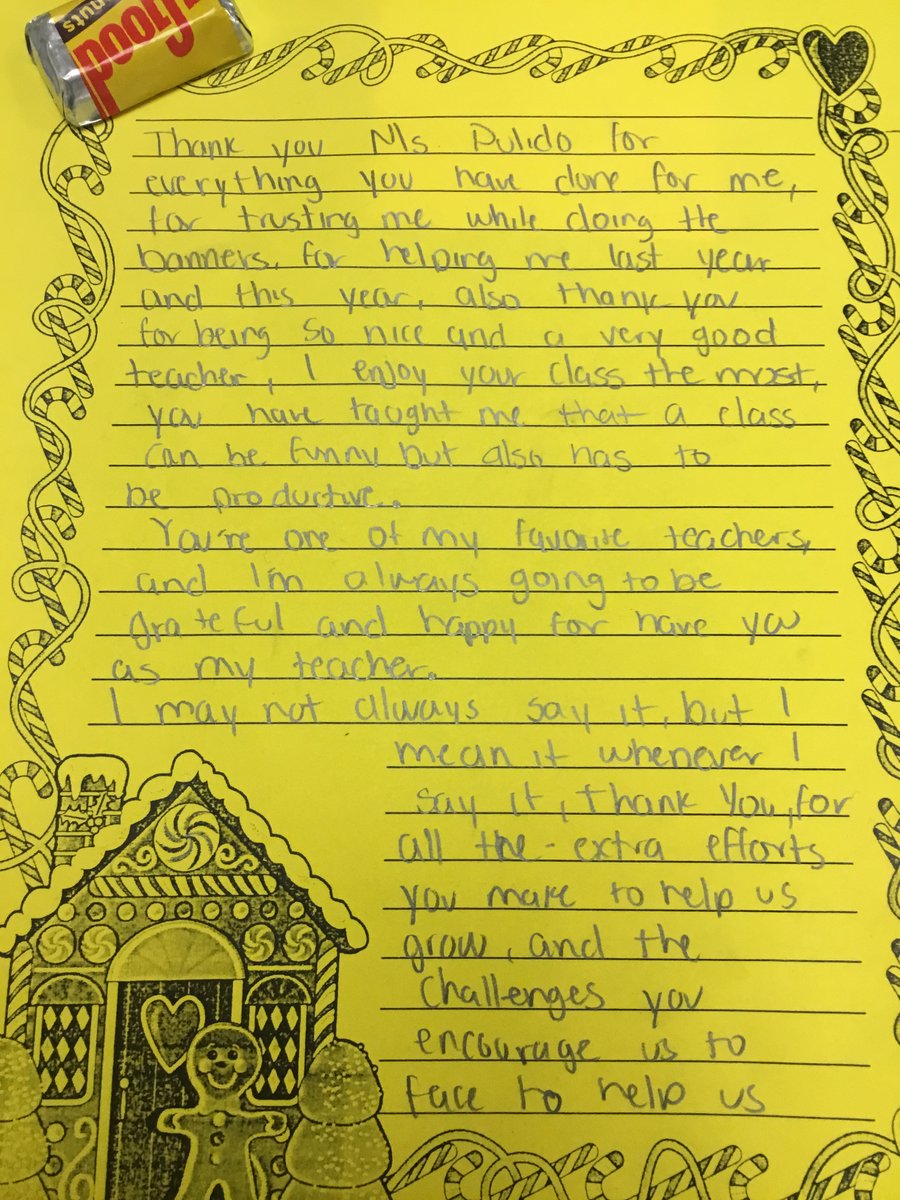 Good
nuts
Thank you Ms Pulido for
everything you have done for me,
for trusting me while doing the
banners, for helping me last year
and this year, also thank you
for being so nice and a very good
teacher, I enjoy your class the most,
you have taught me that a class
can be funny but also has to
be productive..
You're one of my favorite teachers,
and I'm always going to be
grateful and happy for have you
as my teacher.
I may not always say it, but I
mean it whenever I
say it, thank you, for
all the extra efforts
you make to help us
grow, and the
challenges you
encourage us to
face to help us